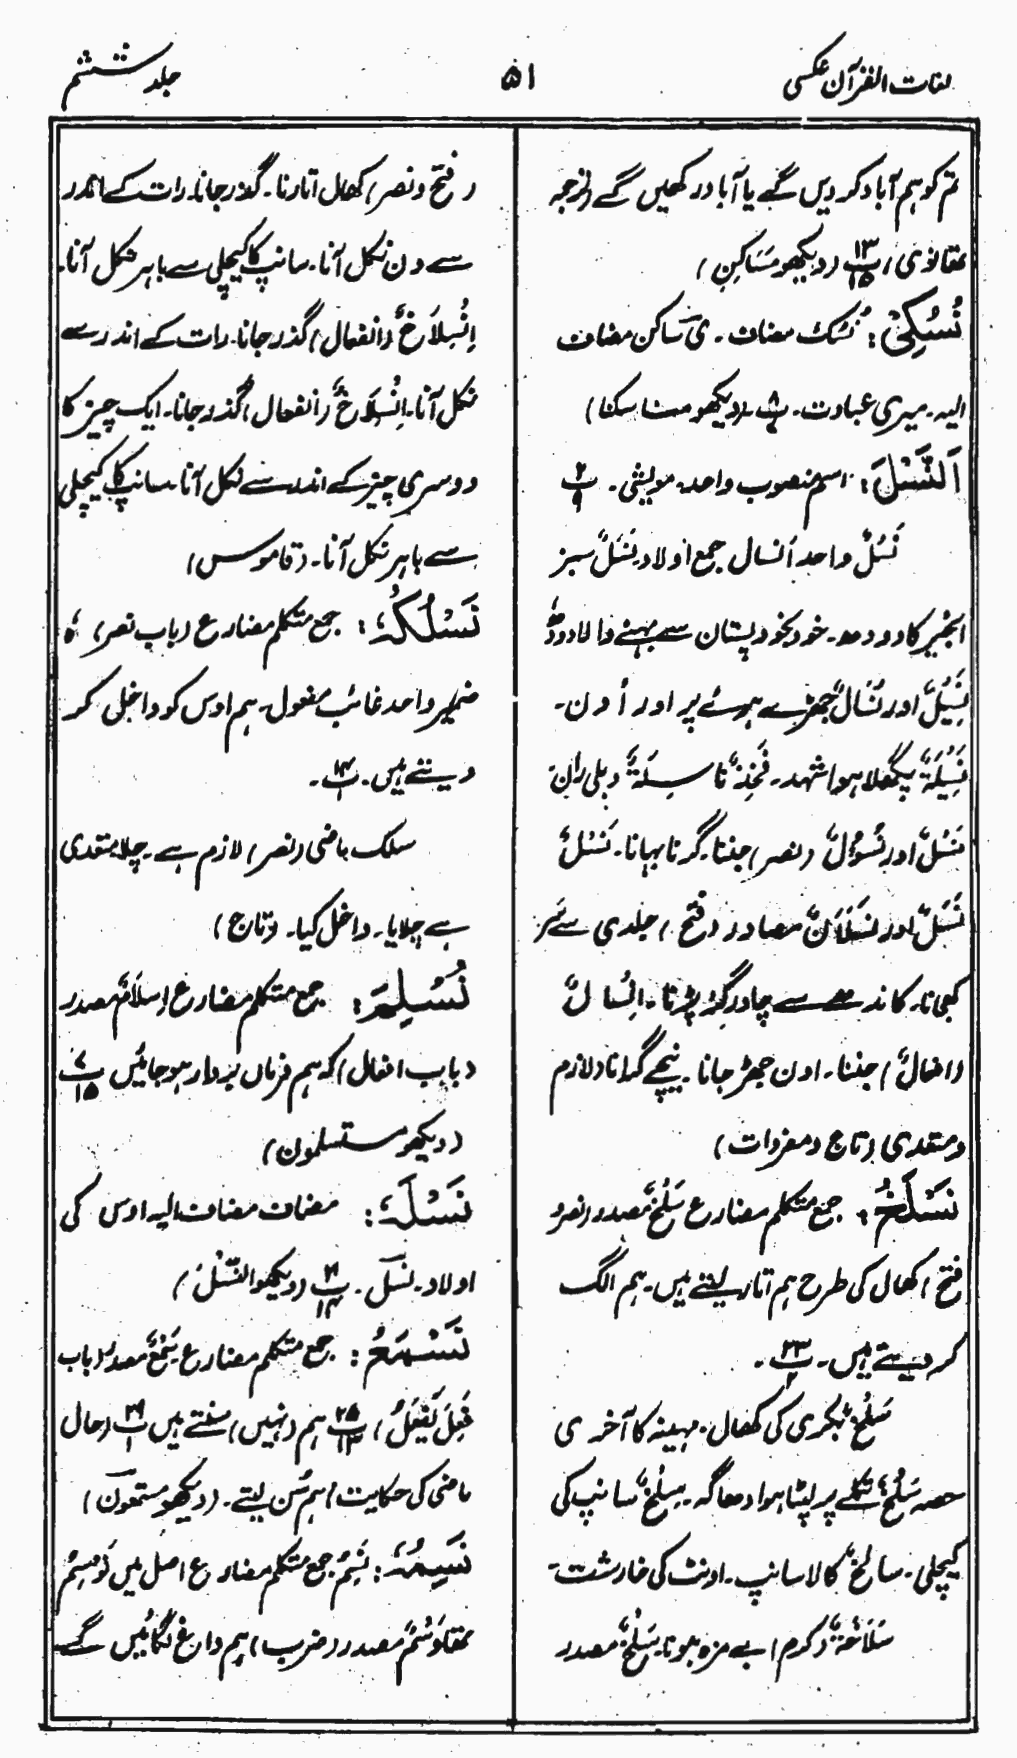 لغات القرآن عکسی
۵۱
جلد ششم
تم کو ہم آباد کر دیں گے یا آباد رکھیں گے (ترجمہ
تھانوی) پ ۱۳ ۱۵ (دیکھو مَسَاکِنِ)
نُسُکِیْ: نُسُک مضاف۔ ی ساکن مضاف
الیہ۔ میری عبادت۔ پ ۸ (دیکھو مناسکنا)
اَلنَّسْلَ: اسم منصوب واحد۔ مویشی۔ پ ۲ ۹
نَسْلٌ واحد اَنسال جمع اولاد نَسَلٌ سبز
انجیر کا دودھ۔ خود بخود پستان سے بہنے والا دودھ
نَسِیْلٌ اور نُسَالٌ جھڑے ہوئے پر اور اُون۔
نَسِیْلَۃٌ پگھلا ہوا شہد۔ فَخِذٌ نا سِلَۃٌ دبلی ران
نَسْلٌ اور نُسُوْلٌ (نصر) جننا۔ گرنا بہانا۔ نَسْلٌ
نَسَلٌ اور نَسَلَانٌ مصادر (فتح) جلدی سے سَر
کھجانا۔ کاندھے سے چادر گر پڑنا۔ اِنْسَالٌ
(افعالٌ) جننا۔ اون جھڑ جانا۔ نیچے گرانا (لازم
ومتعدی (تاج ومفردات)
نَسْلَخُ: جمع متکلم مضارع سَلْخٌ مصدر (نصر و
فتح) کھال کی طرح ہم اتار لیتے ہیں۔ ہم الگ
کر دیتے ہیں۔ پ ۲۳ ۲۔
سَلْخٌ بکری کی کھال۔ مہینہ کا آخری
حصہ سَلْخٌ تکلے پر لپٹا ہوا دھاگہ۔ سِلْخٌ سانپ کی
کیچلی۔ سالخٌ کالا سانپ۔ اونٹ کی خارشت۔
سَلَاخَۃٌ (کرم) بے مزہ ہونا۔ سَلْخٌ مصدر
(فتح و نصر) کھال اتارنا۔ گذر جانا۔ رات کے اندر
سے دن نکل آنا۔ سانپ کا کیچلی سے باہر نکل آنا۔
اِنْسِلَاخٌ (انفعال) گذر جانا۔ رات کے اندر سے
نکل آنا۔ اِنْسِلَاخٌ (انفعال) گذر جانا۔ ایک چیز کا
دوسری چیز کے اندر سے نکل آنا۔ سانپ کا کیچلی
سے باہر نکل آنا۔ (قاموس)
نَسْلُکُہٗ: جمع متکلم مضارع (باب نصر) ہٗ
ضمیر واحد غائب مفعول۔ ہم اوس کو داخل کر
دیتے ہیں۔ پ ۱۴ ۱۔
سلک ماضی (نصر) لازم ہے۔ چلا متعدی
ہے چلایا۔ داخل کیا۔ (تاج)
نُسْلِمَ: جمع متکلم مضارع اِسلَامٌ مصدر
(باب افعال) کہ ہم فرماں بردار ہو جائیں پ ۷ ۱۵
(دیکھو مستسلمون)
نَسْلَہٗ: مضاف مضاف الیہ اوس کی
اولاد۔ نسل۔ پ ۲۱ ۱۴ (دیکھو النَّسْلُ)
نَسْمَعُ: جمع متکلم مضارع سَمْعٌ مصدر (باب
فَعِلَ یَفْعَلُ) پ ۲۵ ۱۳ ہم (نہیں) سنتے ہیں پ ۲۹ ۱ (حال
ماضی کی حکایت) ہم سُن لیتے۔ (دیکھو مستمعون)
نَسِمُہٗ: نَسِمُ جمع متکلم مضارع اصل میں نَوْسِمُ
تھا وَسْمٌ مصدر (ضرب) ہم داغ لگائیں گے